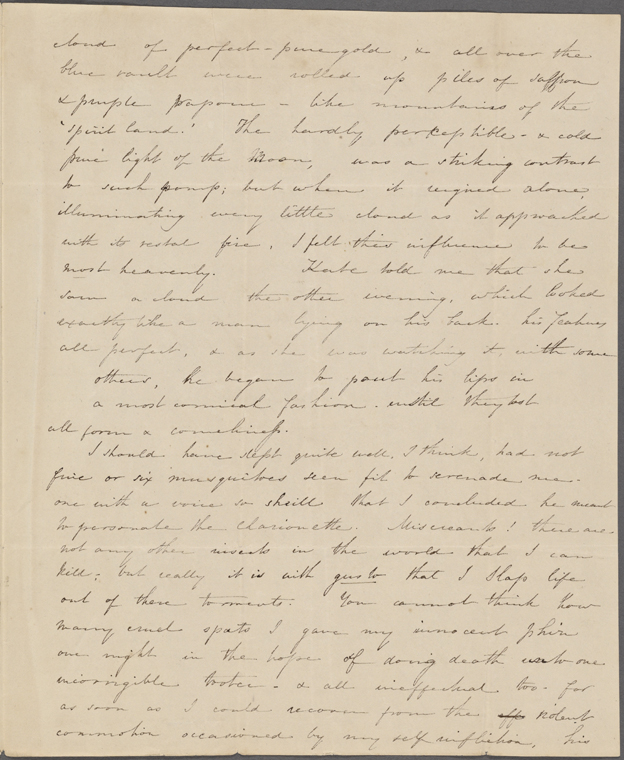 cloud of perfect - pure gold, & all over the
blue vault were rolled up piles of saffron
& purple vapour - like mountains of the
'spirit land.' The hardly perceptible - & cold
pure light of the Moon, was a striking contrast
to such pomp; but when it reigned alone,
illuminating every little cloud as it approached
with its vestal fire, I felt this influence to be
most heavenly. Kate told me that she
saw a cloud the other evening, which looked
exactly like a man lying on his back. his features
all perfect, & as she was watching it with some
others, he began to pout his lips in
a most comical fashion - until they lost
all form & comeliness.
I should have slept quite well, I think, had not
five or six musquitoes seen fit to serenade me -
one with a voice so shrill that I concluded he meant
to personate the Clarionette. Miscreants! there are
not any other insects in the world that I can
kill - but really it is with gusto that I slap life
out of these torments. You cannot think how
many cruel spats I gave my innocent phiz
one night in the hope of doing death unto one
incorrigible - & all ineffectual too - for
as soon as I could recover from the violent
commotion occasioned by my self infliction, his